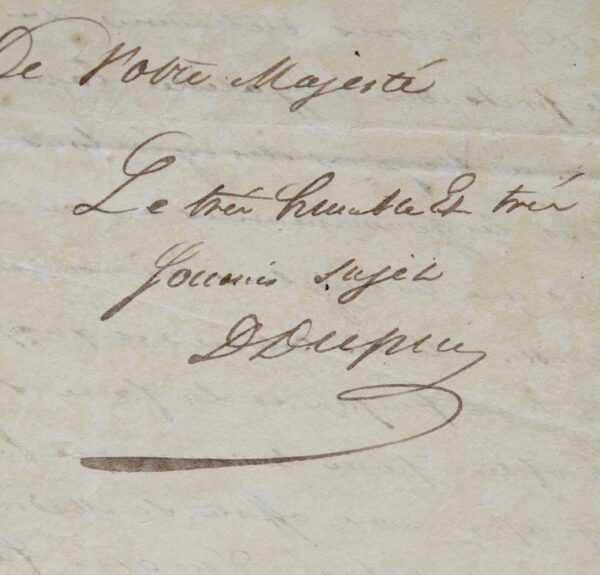 De Votre Majesté
Le très humble Et très
soumis sujet
DDupuy